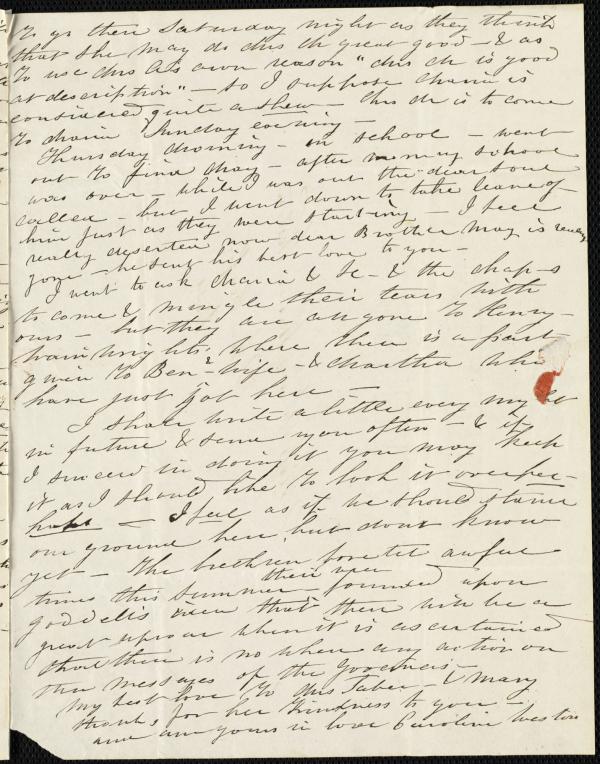 to go then Saturday night as they think
that she may do this ch great good - & as
to use Mrs A's own reason "this ch is good
at description" - so I suppose Maria is
considered quite a shew - this ch is to come
to Maria Sunday evening -
Thursday Morning - in school - went
out to find May - after morning school
was over - while I was out the dear soul
called - but I went down to take leave of
him just as they were starting - I feel
really deserted now dear Brother May is really
gone - he sent his best love to you -
I went to ask Maria & - & the chap-s
to come & mingle their tears with
ours - but they are all gone to Henry
where there is a part-
given to Ben & wife - & Martha who
have just got here -
I shall write a little every night
in future & send you often - & if
I succeed in doing it you may keep
it as I should like to look it over per-
haps - I feel as if we should stand
our ground here, but dont know
yet - The brethren foretel awful
times this summer their view founded upon
goddells idea that there will be a
great uproar when it is ascertained
that there is no where any action on
the messages of the Governors -
My best love to Miss Taber - & many
thanks for her kindness to you -
and am yours in love Caroline Weston